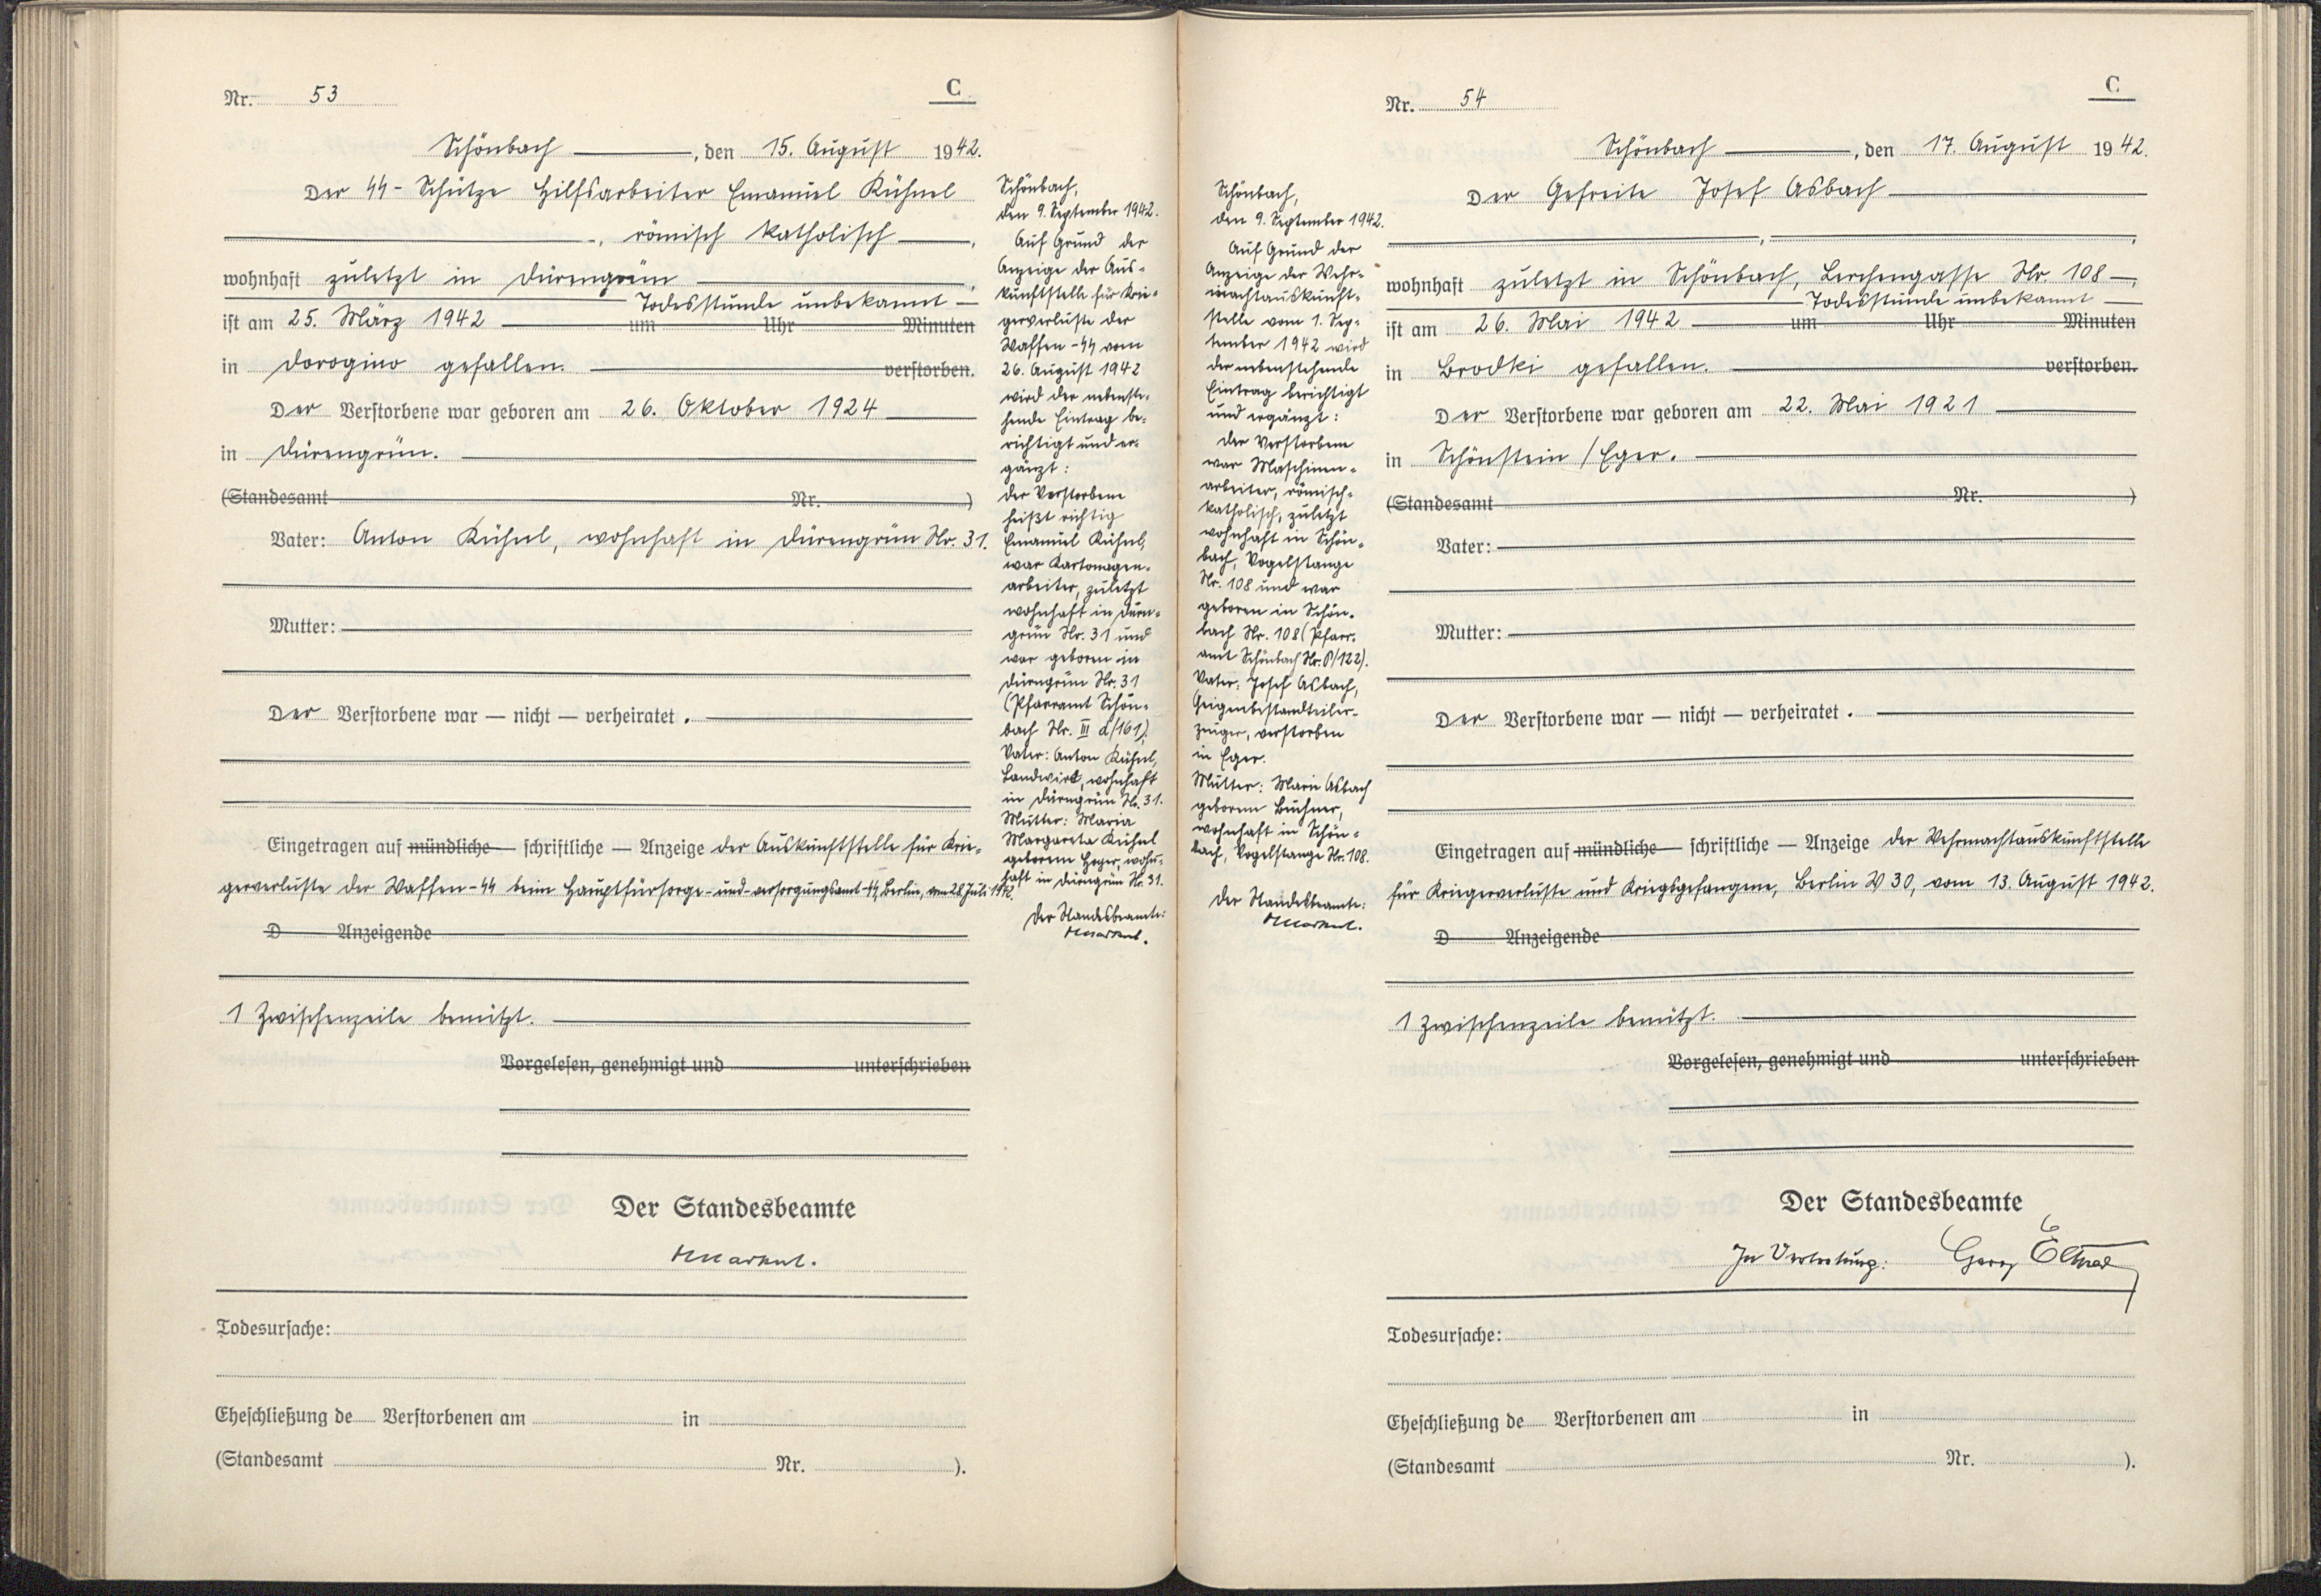 Nr. 53
C
Schönbach, den 15. August 1942.
Der SS-Schütze Hilfsarbeiter Emanuel Kühnel
, römisch katholisch,
wohnhaft zuletzt in Dürengrün,
Todesstunde unbekannt
ist am 25. März 1942 um Uhr Minuten
in Dorogino gefallen. verstorben.
Der Verstorbene war geboren am 26. Oktober 1924
in Dürengrün.
(Standesamt Nr. )
Vater: Anton Kühnl, wohnhaft in Dürengrün Nr. 31.
Mutter:
Der Verstorbene war — nicht — verheiratet.
Eingetragen auf mündliche — schriftliche — Anzeige der Auskunftstelle für Krie-
gerverluste der Waffen-SS beim Hauptfürsorge- und -versorgungsamt-SS, Berlin, vom 28. Juli 1942.
D Anzeigende
1 Zwischenzeile benützt.
Vorgelesen, genehmigt und unterschrieben
Der Standesbeamte
Todesursache:
Eheschließung de Verstorbenen am in
(Standesamt Nr. ).
Schönbach,
den 9. September 1942.
Auf Grund der
Anzeige der Aus-
kunftstelle für Krie-
gerverluste der
Waffen-SS vom
26. August 1942
wird der nebenste-
hende Eintrag be-
richtigt und er-
gänzt:
Der Verstorbene
heißt richtig
Emanuel Kühnl,
war Kartonagen-
arbeiter, zuletzt
wohnhaft in Dürn-
grün Nr. 31 und
war geboren in
Dürngrün Nr. 31
(Pfarramt Schön-
bach Nr. III d/161).
Vater: Anton Kühnl,
Landwirt, wohnhaft
in Dürngrün Nr. 31.
Mutter: Maria
Margareta Kühnl
geborene Hoyer, wohn-
haft in Dürngrün Nr. 31.
Der Standesbeamte:
Schönbach,
den 9. September 1942.
Auf Grund der
Anzeige der Wehr-
machtauskunft-
stelle vom 1. Sep-
tember 1942 wird
der nebenstehende
Eintrag berichtigt
und ergänzt:
Der Verstorbene
war Maschinen-
arbeiter, römisch-
katholisch, zuletzt
wohnhaft in Schön-
bach, Vogelstange
Nr. 108 und war
geboren in Schön-
bach Nr. 108 (Pfarr-
amt Schönbach Nr. P/122).
Vater: Josef Asbach,
Geigenbestandteiler-
zeuger, verstorben
in Eger.
Mutter: Marie Asbach
geborene Buchner,
wohnhaft in Schön-
bach, Vogelstange Nr. 108.
Der Standesbeamte:
Nr. 54
C
Schönbach, den 17. August 1942.
Der Gefreite Josef Asbach
, ,
wohnhaft zuletzt in Schönbach, Lerchengasse Nr. 108,
Todesstunde unbekannt
ist am 26. Mai 1942 um Uhr Minuten
in Brodki gefallen. verstorben.
Der Verstorbene war geboren am 22. Mai 1921
in Schönstein/Eger.
(Standesamt Nr. )
Vater:
Mutter:
Der Verstorbene war — nicht — verheiratet.
Eingetragen auf mündliche — schriftliche — Anzeige der Wehrmachtauskunftstelle
für Kriegerverluste und Kriegsgefangene, Berlin W 30, vom 13. August 1942.
D Anzeigende
1 Zwischenzeile benützt.
Vorgelesen, genehmigt und unterschrieben
Der Standesbeamte
In Vertretung: Georg
Todesursache:
Eheschließung de Verstorbenen am in
(Standesamt Nr. ).